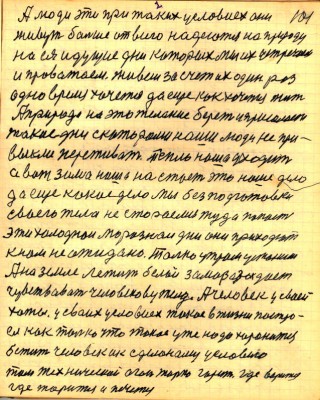 101
А люди эти при таких условиех они
живут больше от всего надеются на природу
на ея идущие дни которых мы их встречаем
и проватаем. живем за счет их один раз
одно время хочется да еще как хочется жить
А природа на это телание берет и присылает
такое дни с которыми наши люди не при-
выкли перетивать тепло наше уходит
а вот зима наша настает это наше дело
да еще какое дело мы без подготовки
своего тела не стораемся туда попасть
эти холодном морозная дни они приходят
к нам не ожидано. Только утром утоним
А на земле летит белой замораздает
чувствавать человеку тижо. А человек у своей
хаты, у своих условиех такое в жизни постро-
ся как только что такое уже надо харанится
бетит человек ик сделоному условию
там технической огонь жарко горит. где варится
где жарится и печется